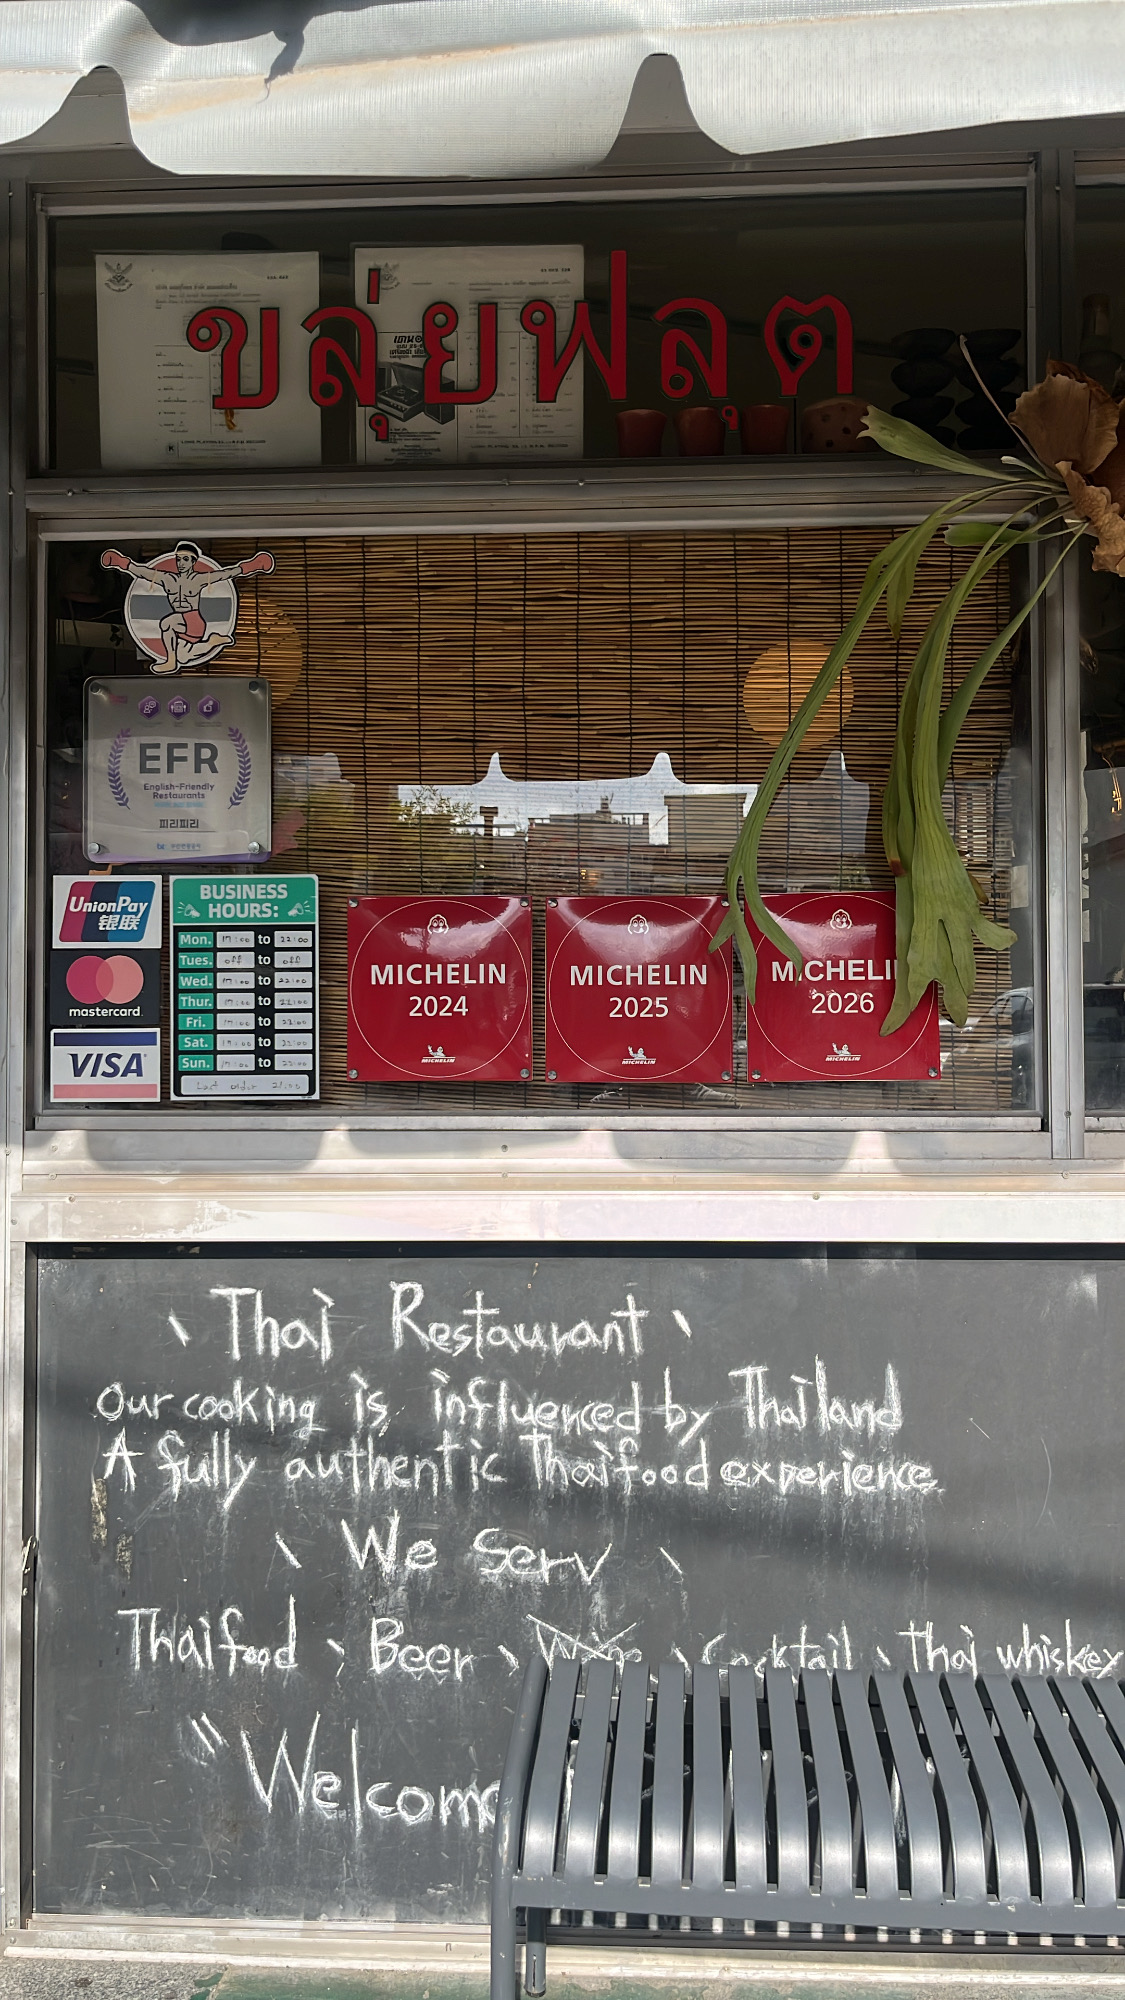 ขลุ่ยฟลุต
EFR
English-Friendly
Restaurants
피리피리
UnionPay
银联
mastercard
VISA
BUSINESS
HOURS:
Mon. 17:00 to 22:00
Tues. off to off
Wed. 17:00 to 22:00
Thur. 17:00 to 22:00
Fri. 17:00 to
Sat. to
Sun. to
Last order 21:00
MICHELIN
2024
MICHELIN
MICHELIN
2025
MICHELIN
MICHELIN
2026
MICHELIN
Thai Restaurant
Our cooking is influenced by Thailand
A fully authentic Thaifood experience
We Serv
Thaifood、Beer、Wine、Cocktail、Thai whiskey
"Welcome